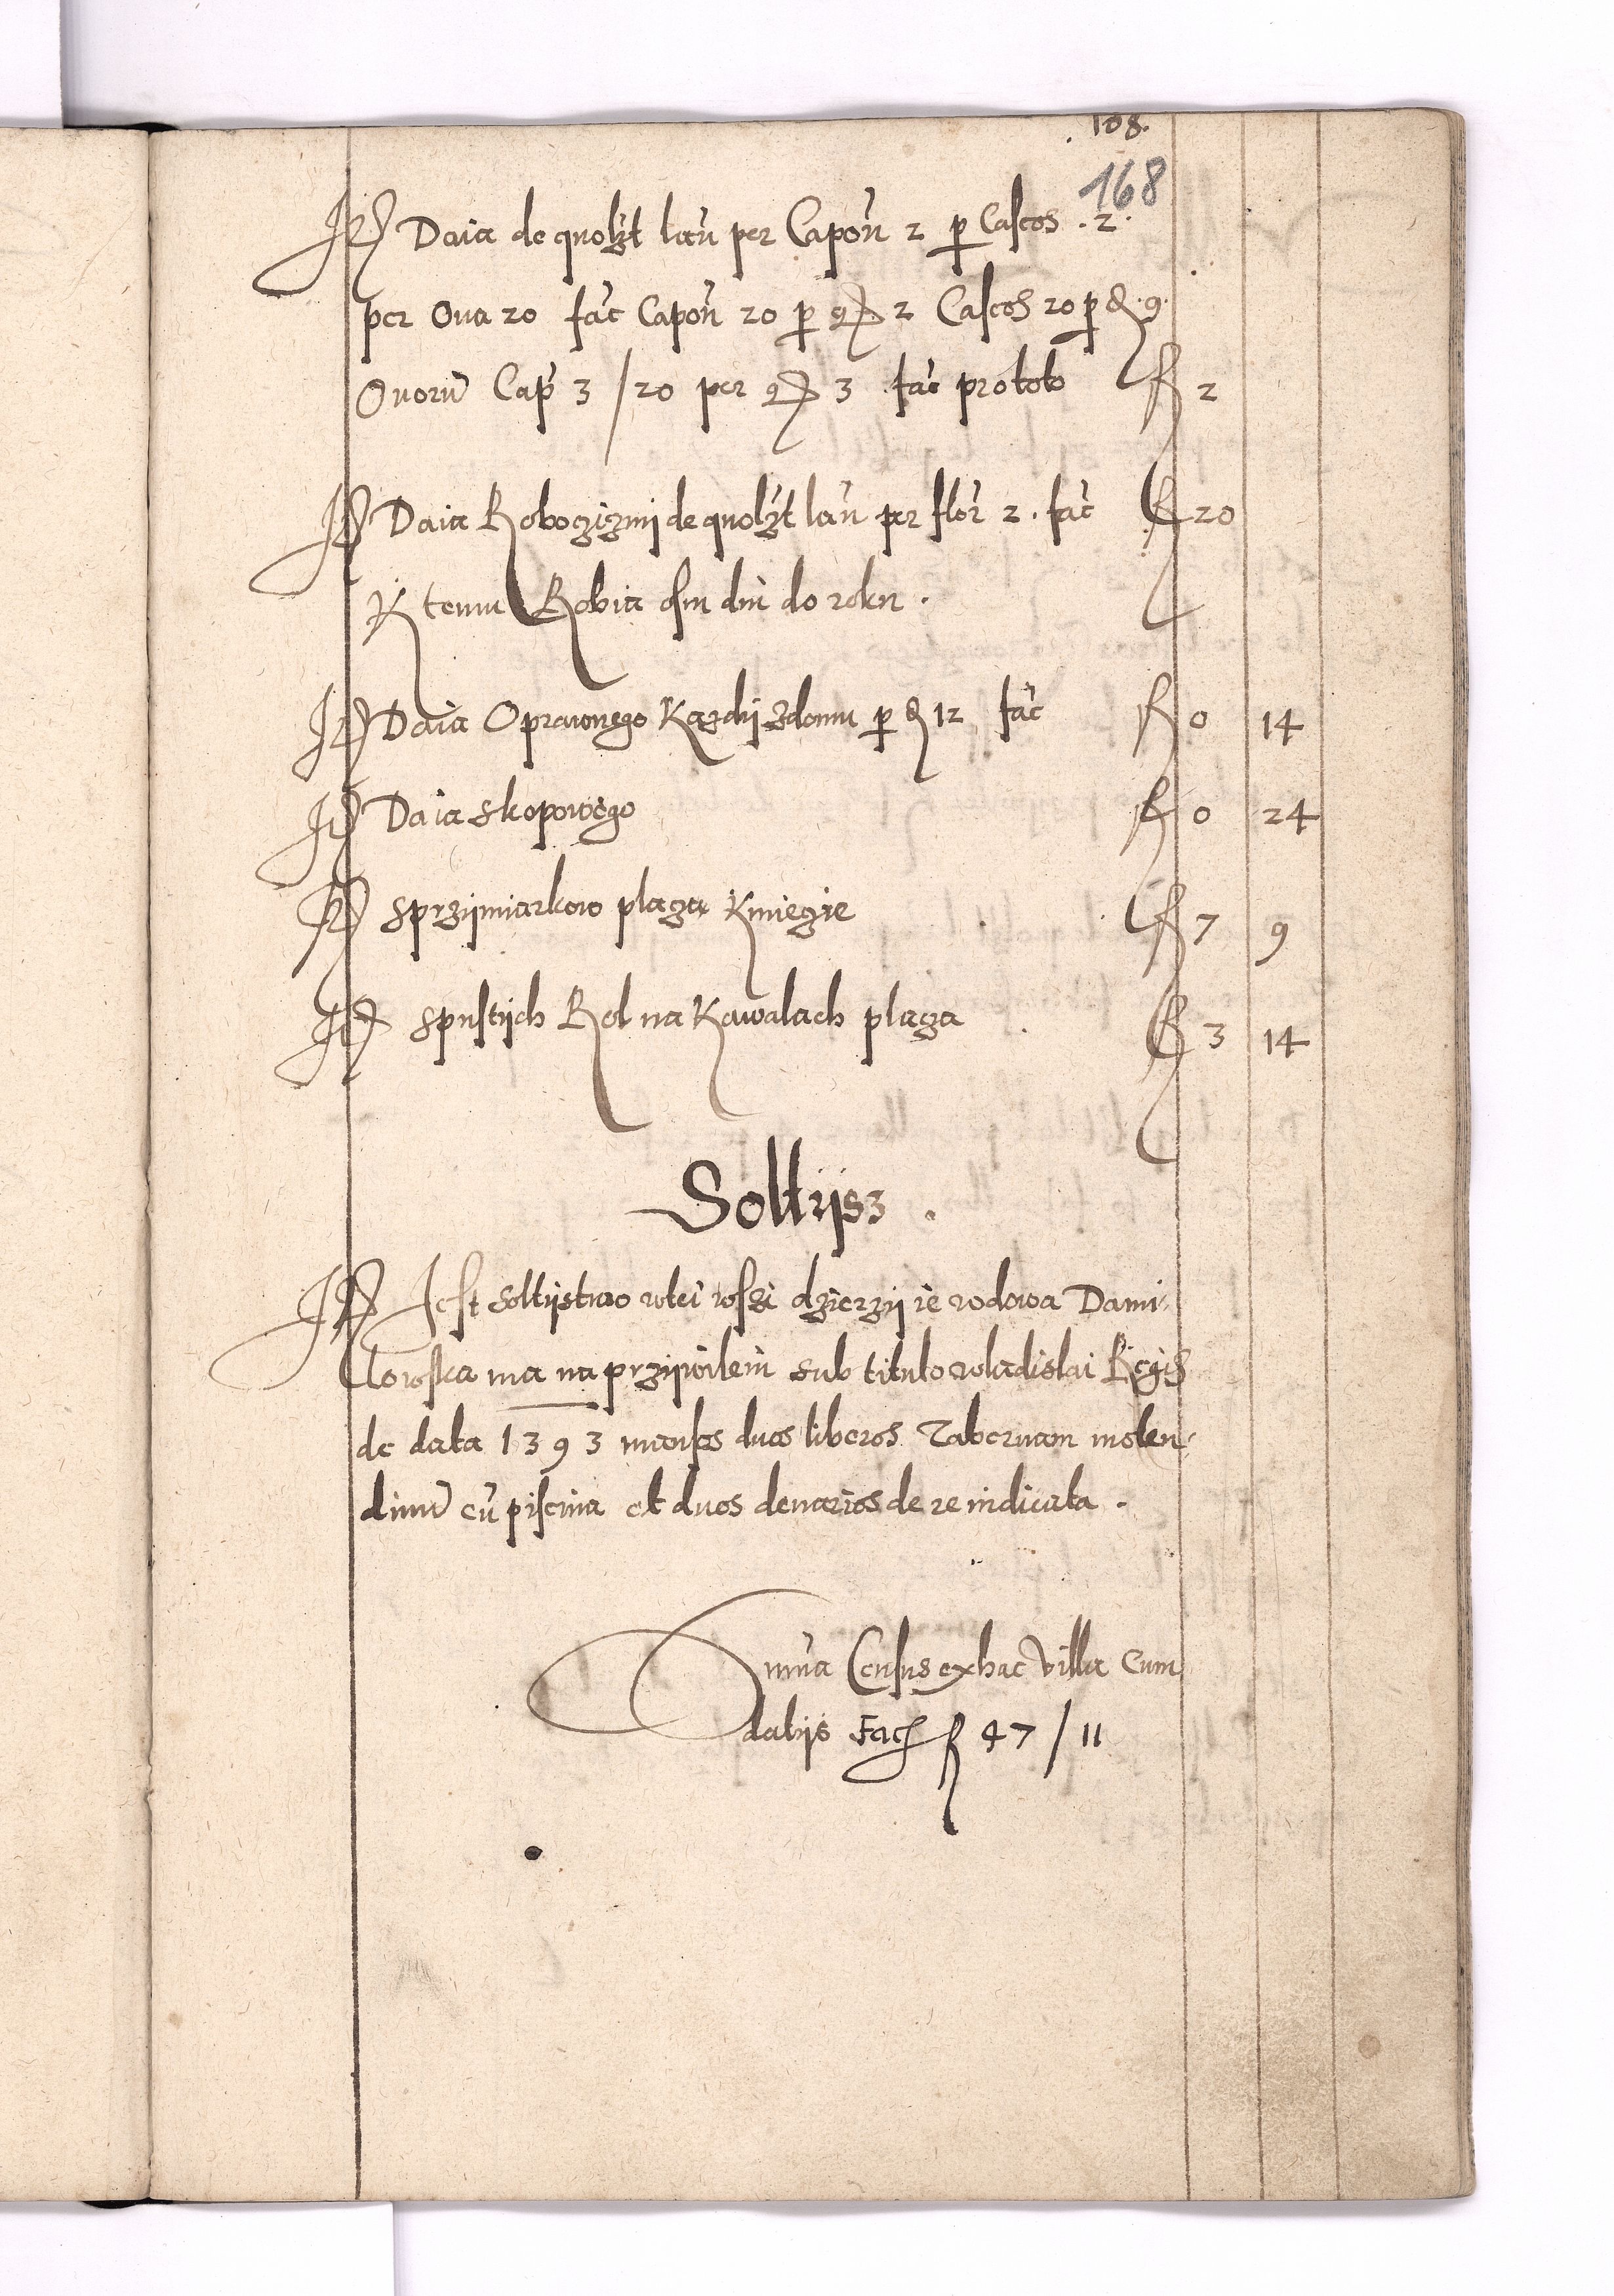 108.
168
Daia de quolꝫt lan̄ per Capon̄ 2 ꝑ Caseos . 2 .
per Oua 20 fac̄ Capon̄ 20 ꝑ gr 2 Caseos 20 ꝑ ₰ . 9 .
Ouorū Cap̄ 3 / 20 per gr 3 fac̄ pro toto fl 2
Daia Robocizmij de quolꝫt lan̄ per flor̄ 2 . fac̄ fl 20
K temu Robia osm dni do roku .
Daia Oprawnego Kazdij zdomu ꝑ ₰ 12 fac̄ fl 0 14
Daia skopowego fl 0 24
sprzijmiarkow placza Kmiecie fl 7 9
spustijch Rol na Kawalach placza fl 3 14
Soltijsz .
It Iest soltijstwo wtei wsi dzierzij ie wdowa Dami-
lowska ma na przijwilein sub titulo wladislai Regis
de data 1393 mansos duos liberos Tabernam molen-
dinū cū piscina et duos denarios de re iudicata .
Suma Census ex hac villa Cum
datijs Facit fl 47 / 11